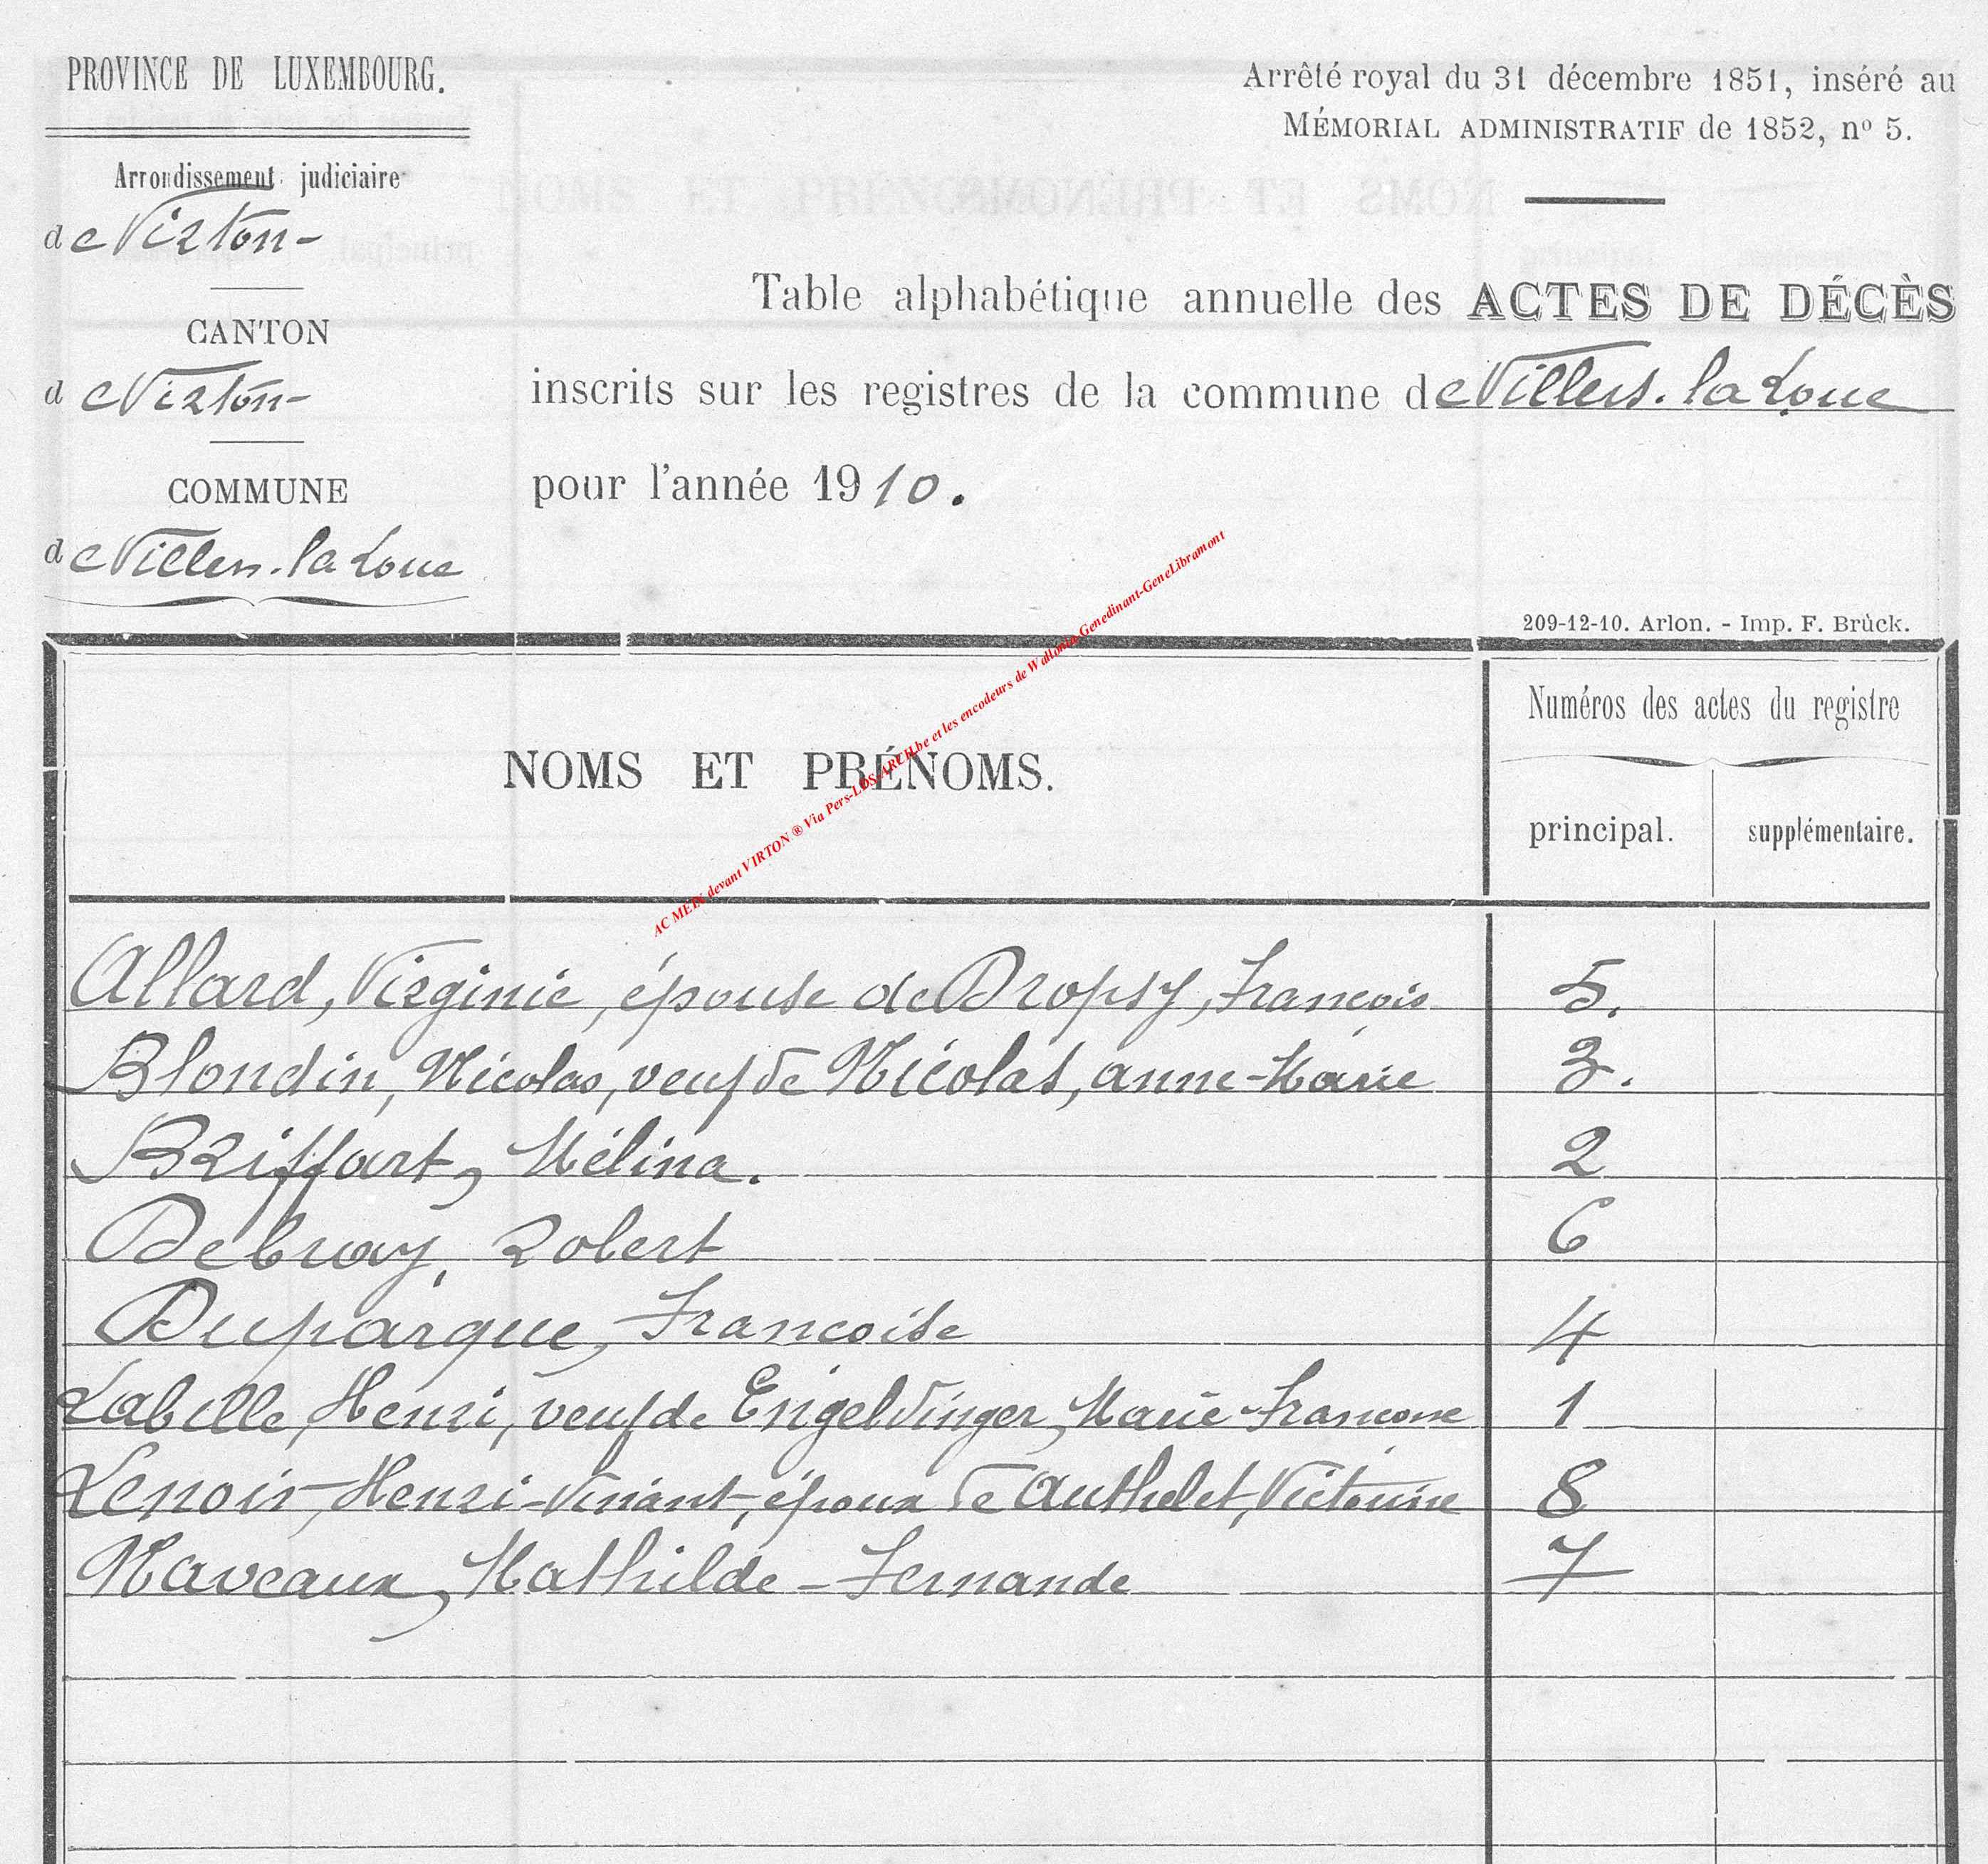 PROVINCE DE LUXEMBOURG.
Arrondissement judiciaire
de Virton-
CANTON
de Virton-
COMMUNE
de Villers-la Loue
Arrêté royal du 31 décembre 1851, inséré au
MÉMORIAL ADMINISTRATIF de 1852, nº 5.
Table alphabétique annuelle des ACTES DE DÉCÈS
inscrits sur les registres de la commune de Villers-la Loue
pour l'année 1910.
209-12-10. Arlon. - Imp. F. Brück.
AC MEIX devant VIRTON ® Via Pers-LDS-ARCH.be et les encodeurs de Wallonia-Genedinant-GeneLibramont
NOMS ET PRÉNOMS.
Numéros des actes du registre
principal. supplémentaire.
Allard, Virginie, épouse de Dropsy, François 5.
Blondin, Nicolas, veuf de Nicolas, anne-Marie 3.
Briffart, Mélina. 2
Debruay, Robert 6
Duparque, Francoise 4
Labelle, Henri, veuf de Engeldinger, Marie-Francoise 1
Lenoir, Henri-Vinant, époux de Authelet, Victorine 8
Naveaux, Mathilde-Fernande 7